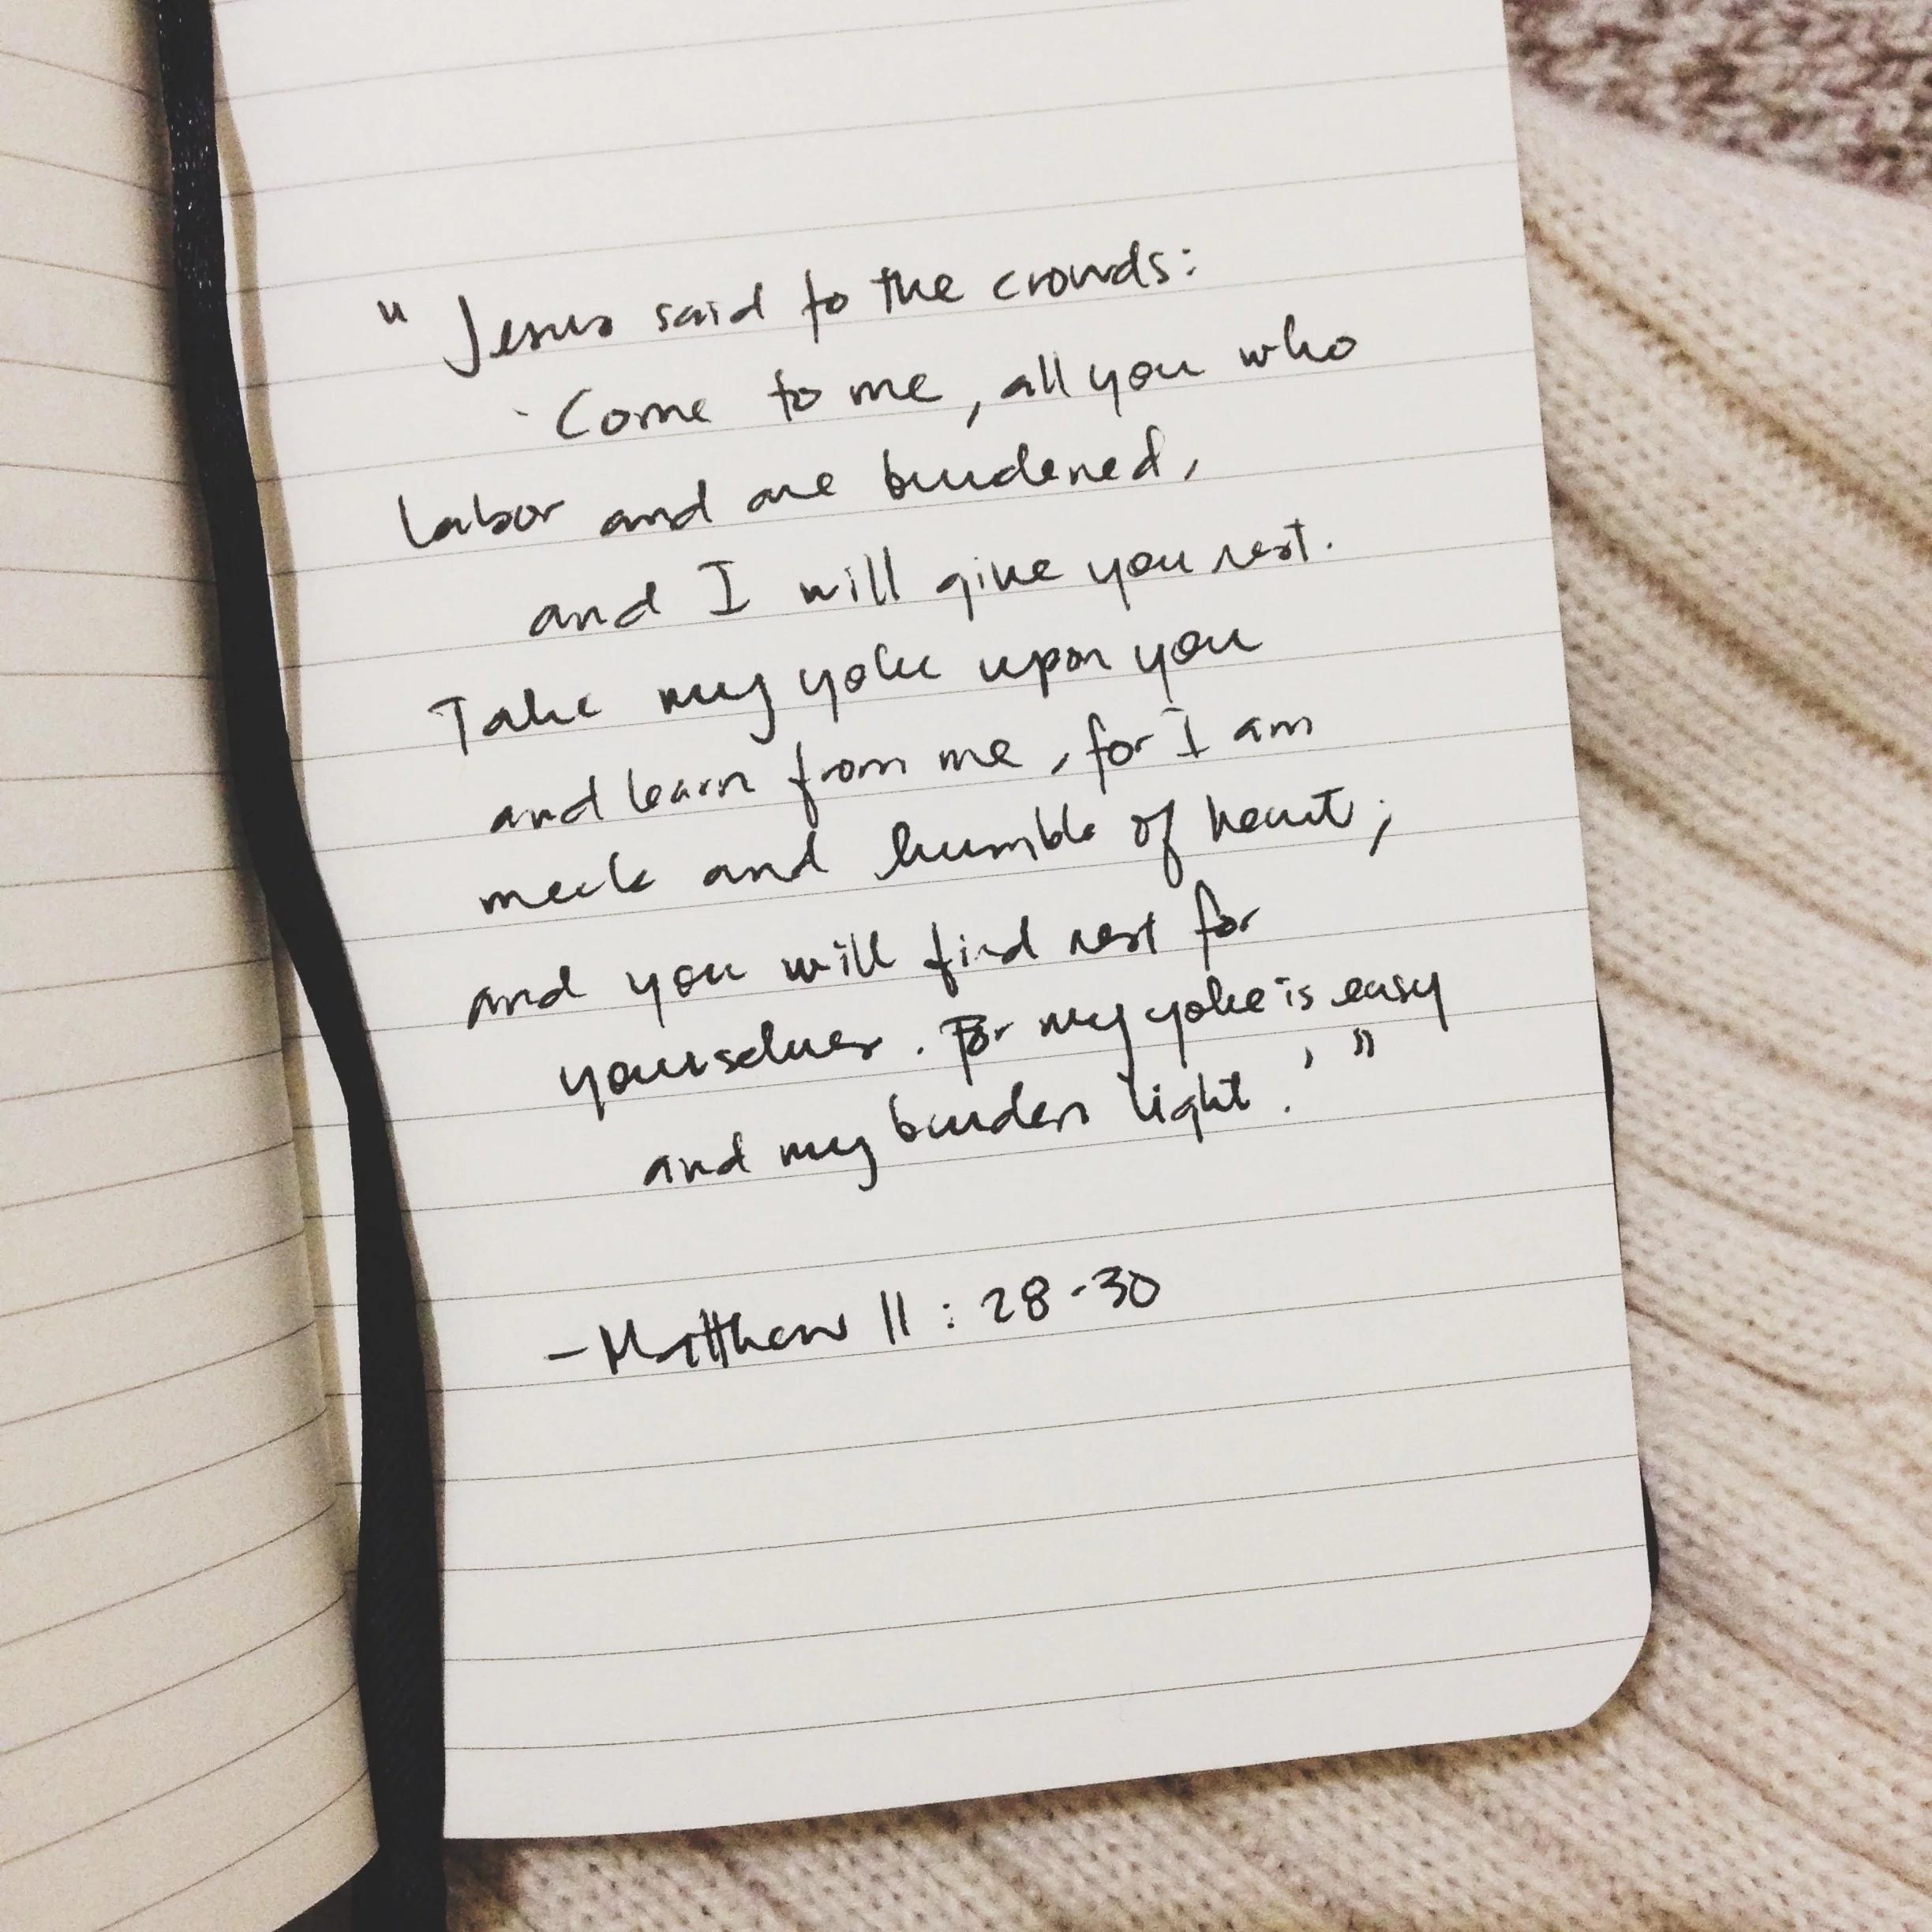 " Jesus said to the crowds:
'Come to me, all you who
labor and are burdened,
and I will give you rest.
Take my yoke upon you
and learn from me, for I am
meek and humble of heart;
and you will find rest for
yourselves. For my yoke is easy
and my burden light.' "
- Matthew 11:28-30